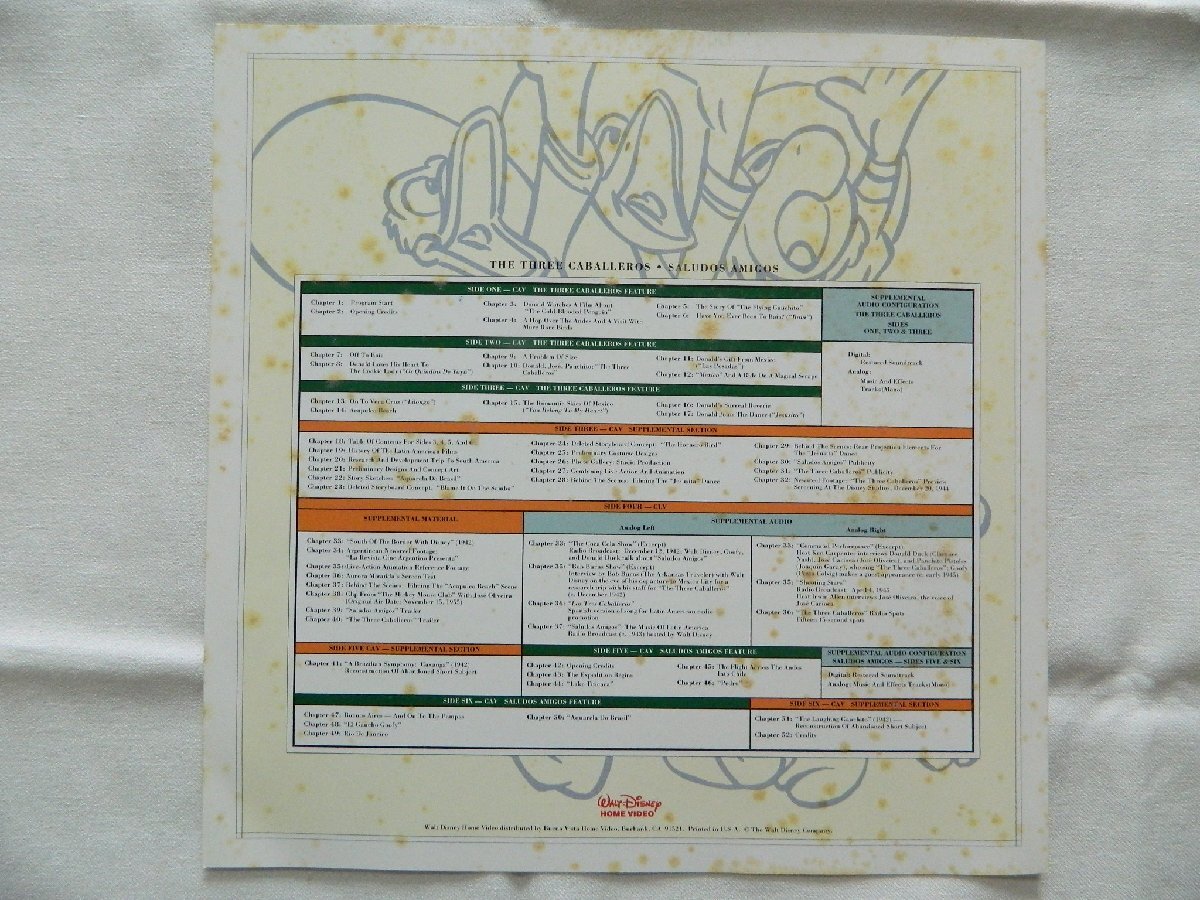 THE THREE CABALLEROS • SALUDOS AMIGOS
SIDE ONE — CAV THE THREE CABALLEROS FEATURE
Chapter 1: Program Start
Chapter 2: Opening Credits
Chapter 3: Donald Watches A Film About
"The Cold-Blooded Penguin"
Chapter 4: A Hop Over The Andes And A Visit With
More Rare Birds
Chapter 5: The Story Of "The Flying Gauchito"
Chapter 6: Have You Ever Been To Baia? ("Baia")
SUPPLEMENTAL
AUDIO CONFIGURATION
THE THREE CABALLEROS
SIDES
ONE, TWO & THREE
Digital:
Restored Soundtrack
Analog:
Music And Effects
Tracks (Mono)
SIDE TWO — CAV THE THREE CABALLEROS FEATURE
Chapter 7: Off To Baia
Chapter 8: Donald Loses His Heart To
The Cookie Lady ("Os Quindins De Yayá")
Chapter 9: A Problem Of Size
Chapter 10: Donald, José, Panchito: "The Three
Caballeros"
Chapter 11: Donald's Gift From Mexico
("Las Posadas")
Chapter 12: "Mexico" And A Ride On A Magical Serape
SIDE THREE — CAV THE THREE CABALLEROS FEATURE
Chapter 13: On To Vera Cruz ("Lilongo")
Chapter 14: Acapulco Beach
Chapter 15: The Romantic Skies Of Mexico
("You Belong To My Heart")
Chapter 16: Donald's Surreal Reverie
Chapter 17: Donald Joins The Dance ("Jesusita")
SIDE THREE — CAV SUPPLEMENTAL SECTION
Chapter 18: Table Of Contents For Sides 3, 4, 5, And 6
Chapter 19: History Of The Latin American Films
Chapter 20: Research And Development Trip To South America
Chapter 21: Preliminary Designs And Concept Art
Chapter 22: Story Sketches: "Aquarela Do Brasil"
Chapter 23: Deleted Storyboard Concept: "Blame It On The Samba"
Chapter 24: Deleted Storyboard Concept: "The Rancho Bird"
Chapter 25: Preliminary Costume Designs
Chapter 26: Photo Gallery: Studio Production
Chapter 27: Combining Live Action And Animation
Chapter 28: Behind The Scenes: Filming The "Jesusita" Dance
Chapter 29: Behind The Scenes: Rear Projection Elements For
The "Jesusita" Dance
Chapter 30: "Saludos Amigos" Publicity
Chapter 31: "The Three Caballeros" Publicity
Chapter 32: Newsreel Footage: "The Three Caballeros" Premiere
Screening At The Disney Studios, December 20, 1944
SIDE FOUR — CLV
SUPPLEMENTAL MATERIAL
Chapter 33: "South Of The Border With Disney" (1942)
Chapter 34: Argentinean Newsreel Footage:
"La Revista Cine Argentino Presenta"
Chapter 35: Live-Action Animation Reference Footage
Chapter 36: Aurora Miranda's Screen Test
Chapter 37: Behind The Scenes: Filming The "Acapulco Beach" Scene
Chapter 38: Clip From "The Mickey Mouse Club" With José Oliveira
(Original Air Date: November 15, 1955)
Chapter 39: "Saludos Amigos" Trailer
Chapter 40: "The Three Caballeros" Trailer
SUPPLEMENTAL AUDIO
Analog Left
Chapter 33: "The Coca Cola Show" (Excerpt)
Radio Broadcast: December 12, 1942. Walt Disney, Goofy,
and Donald Duck talk about "Saludos Amigos"
Chapter 35: "Bob Burns Show" (Excerpt)
Interview by Bob Burns (The Arkansas Traveler) with Walt
Disney on the eve of his departure to Mexico City for a
research trip with his staff for "The Three Caballeros"
(c. December 1942)
Chapter 36: "Los Tres Caballeros"
Spanish version of song for Latin American radio
promotion
Chapter 37: "Saludos Amigos": The Music Of Latin America
Radio Broadcast (c. 1943) hosted by Walt Disney
Analog Right
Chapter 33: "Command Performance" (Excerpt)
Host Ken Carpenter interviews Donald Duck (Clarence
Nash), José Carioca (José Oliveira), and Panchito Pistoles
(Joaquin Garay), showing "The Three Caballeros"; Goofy
(Pinto Colvig) makes a guest appearance (c. early 1945)
Chapter 35: "Shooting Stars"
Radio Broadcast: April 4, 1945
Host Irwin Allen interviews José Oliveira, the voice of
José Carioca
Chapter 36: "The Three Caballeros" Radio Spots
Fifteen 15-second spots
SIDE FIVE CAV — SUPPLEMENTAL SECTION
Chapter 41: "A Brazilian Symphony: Caxangá" (1942)
Reconstruction Of Abandoned Short Subject
SIDE FIVE — CAV SALUDOS AMIGOS FEATURE
Chapter 42: Opening Credits
Chapter 43: The Expedition Begins
Chapter 44: "Lake Titicaca"
Chapter 45: The Flight Across The Andes
Into Chile
Chapter 46: "Pedro"
SUPPLEMENTAL AUDIO CONFIGURATION
SALUDOS AMIGOS — SIDES FIVE & SIX
Digital: Restored Soundtrack
Analog: Music And Effects Tracks (Mono)
SIDE SIX — CAV SALUDOS AMIGOS FEATURE
Chapter 47: Buenos Aires — And On To The Pampas
Chapter 48: "El Gaucho Goofy"
Chapter 49: Rio De Janeiro
Chapter 50: "Aquarela Do Brasil"
SIDE SIX — CAV SUPPLEMENTAL SECTION
Chapter 51: "The Laughing Gauchito" (1942) —
Reconstruction Of Abandoned Short Subject
Chapter 52: Credits
WALT DISNEY
HOME VIDEO
Walt Disney Home Video distributed by Buena Vista Home Video, Burbank, CA 91521. Printed in U.S.A. © The Walt Disney Company.